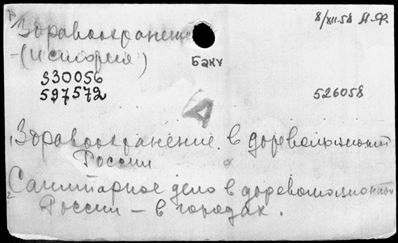 Здравоохранение 8/XII.58 М.Ф.
-(история)
Баку
530056
597572 526058
1. Здравоохранение в дореволюционной
России
2. Санитарное дело в дореволюционной
России - в городах.